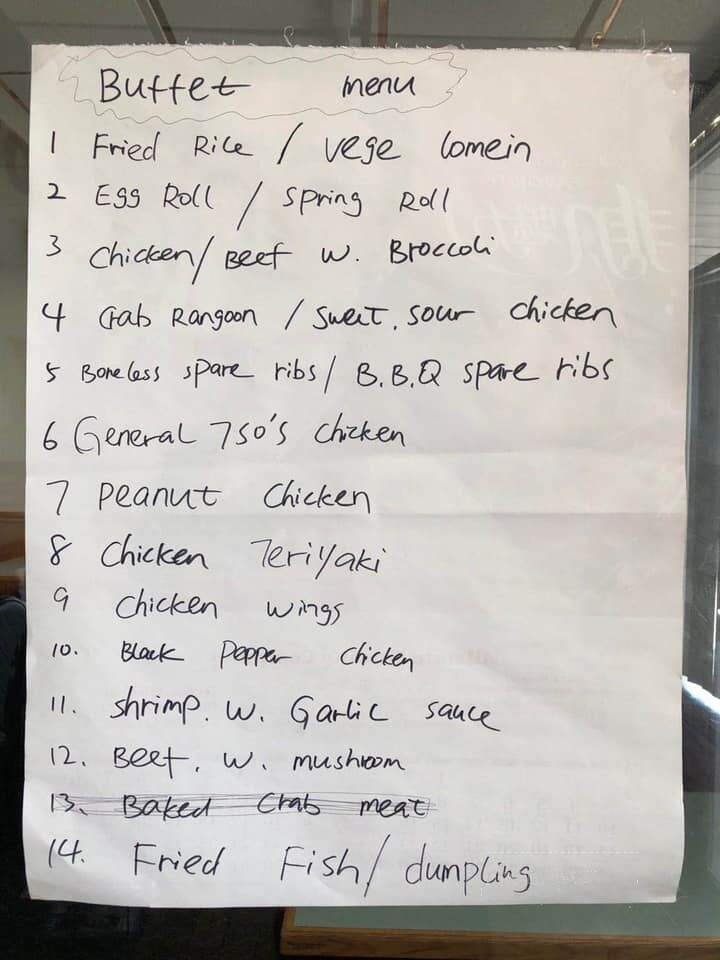 Buffet menu
1 Fried Rice / vege lomein
2 Egg Roll / spring Roll
3 Chicken/ Beef w. Broccoli
4 Crab Rangoon / sweet. sour chicken
5 Boneless spare ribs/ B.B.Q spare ribs
6 General Tso's chicken
7 Peanut chicken
8 Chicken Teriyaki
9 chicken wings
10. Black Pepper chicken
11. shrimp. w. Garlic sauce
12. Beef. w. mushroom
13. Baked Crab meat
14. Fried Fish/ dumpling